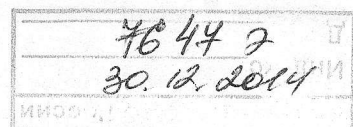 7647 э
30.12.2014